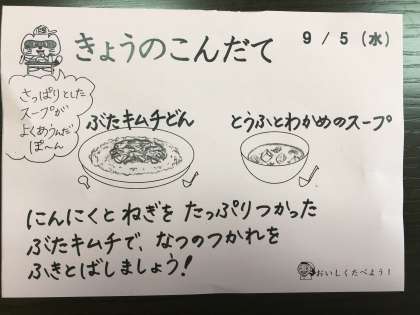 きょうのこんだて
9/5(水)
さっぱりとした
スープが
よくあうんだ
ぽ〜ん
ぶたキムチどん
とうふとわかめのスープ
にんにくと ねぎを たっぷりつかった
ぶたキムチで、なつのつかれを
ふきとばしましょう!
おいしくたべよう!